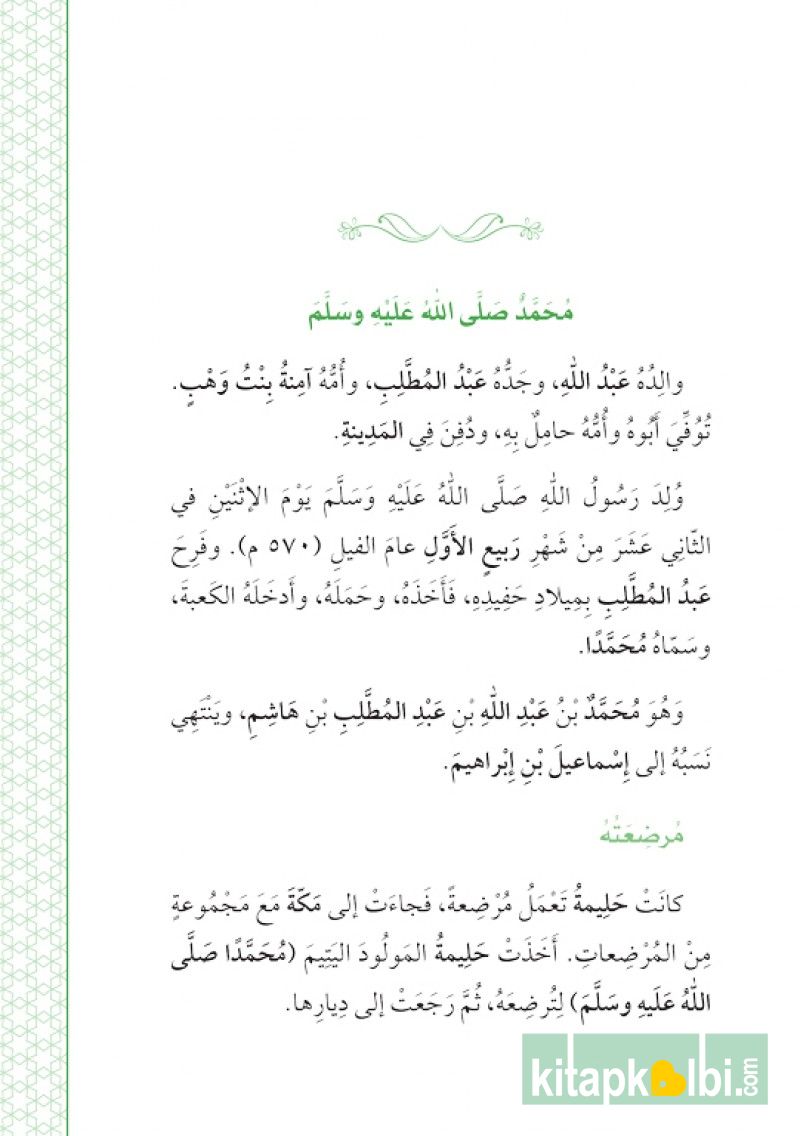 مُحَمَّدٌ صَلَّى اللّٰهُ عَلَيْهِ وسَلَّمَ
والِدُهُ عَبْدُ اللّٰهِ، وجَدُّهُ عَبْدُ المُطَّلِبِ، وأُمُّهُ آمِنةُ بِنْتُ وَهْبٍ.
تُوُفِّيَ أَبُوهُ وأُمُّهُ حامِلٌ بِهِ، ودُفِنَ فِي المَدِينةِ.
وُلِدَ رَسُولُ اللّٰهِ صَلَّى اللّٰهُ عَلَيْهِ وَسَلَّمَ يَوْمَ الإثْنَيْنِ في
الثّانِي عَشَرَ مِنْ شَهْرِ رَبِيعٍ الأَوَّلِ عامَ الفيلِ (٥٧٠ م). وفَرِحَ
عَبدُ المُطَّلِبِ بِمِيلادِ حَفِيدِهِ، فَأَخَذَهُ، وحَمَلَهُ، وأَدخَلَهُ الكَعبةَ،
وسَمّاهُ مُحَمَّدًا.
وَهُوَ مُحَمَّدٌ بْنُ عَبْدِ اللّٰهِ بْنِ عَبْدِ المُطَّلِبِ بْنِ هَاشِمِ، ويَنْتَهِي
نَسَبُهُ إلى إِسْماعيلَ بْنِ إبْراهيمَ.
مُرضِعَتُهُ
كانَتْ حَلِيمةُ تَعْمَلُ مُرْضِعةً، فَجاءَتْ إلى مَكّةَ مَعَ مَجْمُوعةٍ
مِنْ المُرْضِعاتِ. أَخَذَتْ حَلِيمةُ المَولُودَ اليَتِيمَ (مُحَمَّدًا صَلَّى
اللّٰهُ عَلَيهِ وسَلَّمَ) لِتُرضِعَهُ، ثُمَّ رَجَعَتْ إلى دِيارِها.
kitapkalbi.com